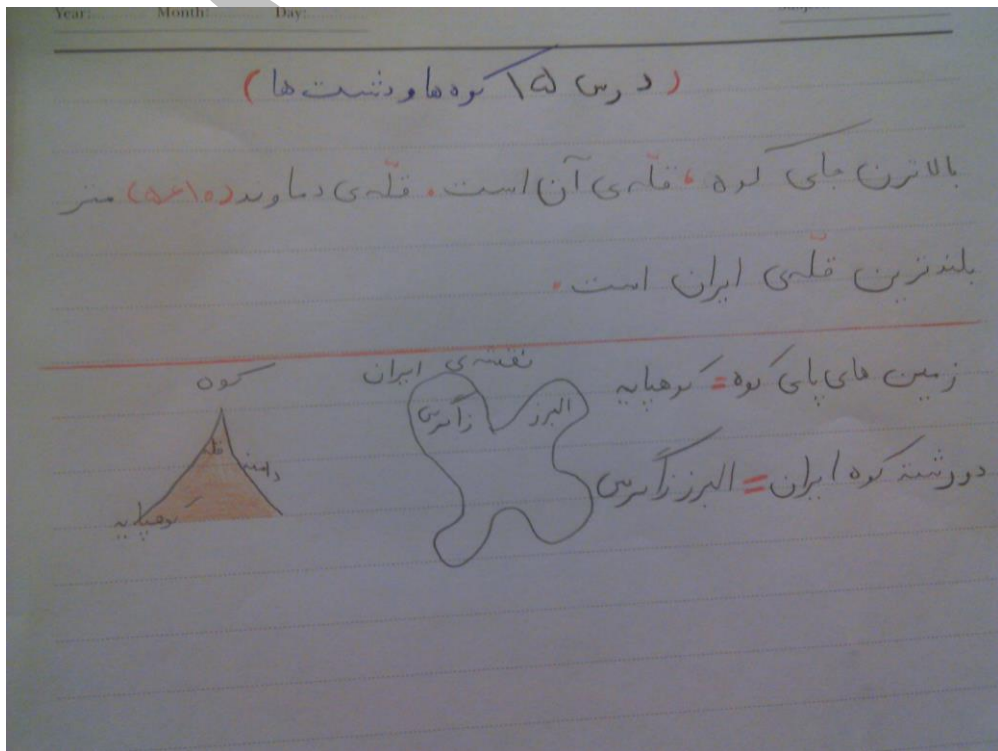 Year: Month: Day:
(درس ۱۵ کوه ها و دشت ها)
بالاترن جای کوه، قلّه ی آن است. قلّه ی دماوند (۵۶۱۰) متر
بلندترین قلّه ی ایران است.
زمین های پای کوه = کوهپایه
دو رشته کوه ایران = البرز زاگرس
نقشه ی ایران
البرز
زاگرس
کوه
قله
دامنه
کوهپایه